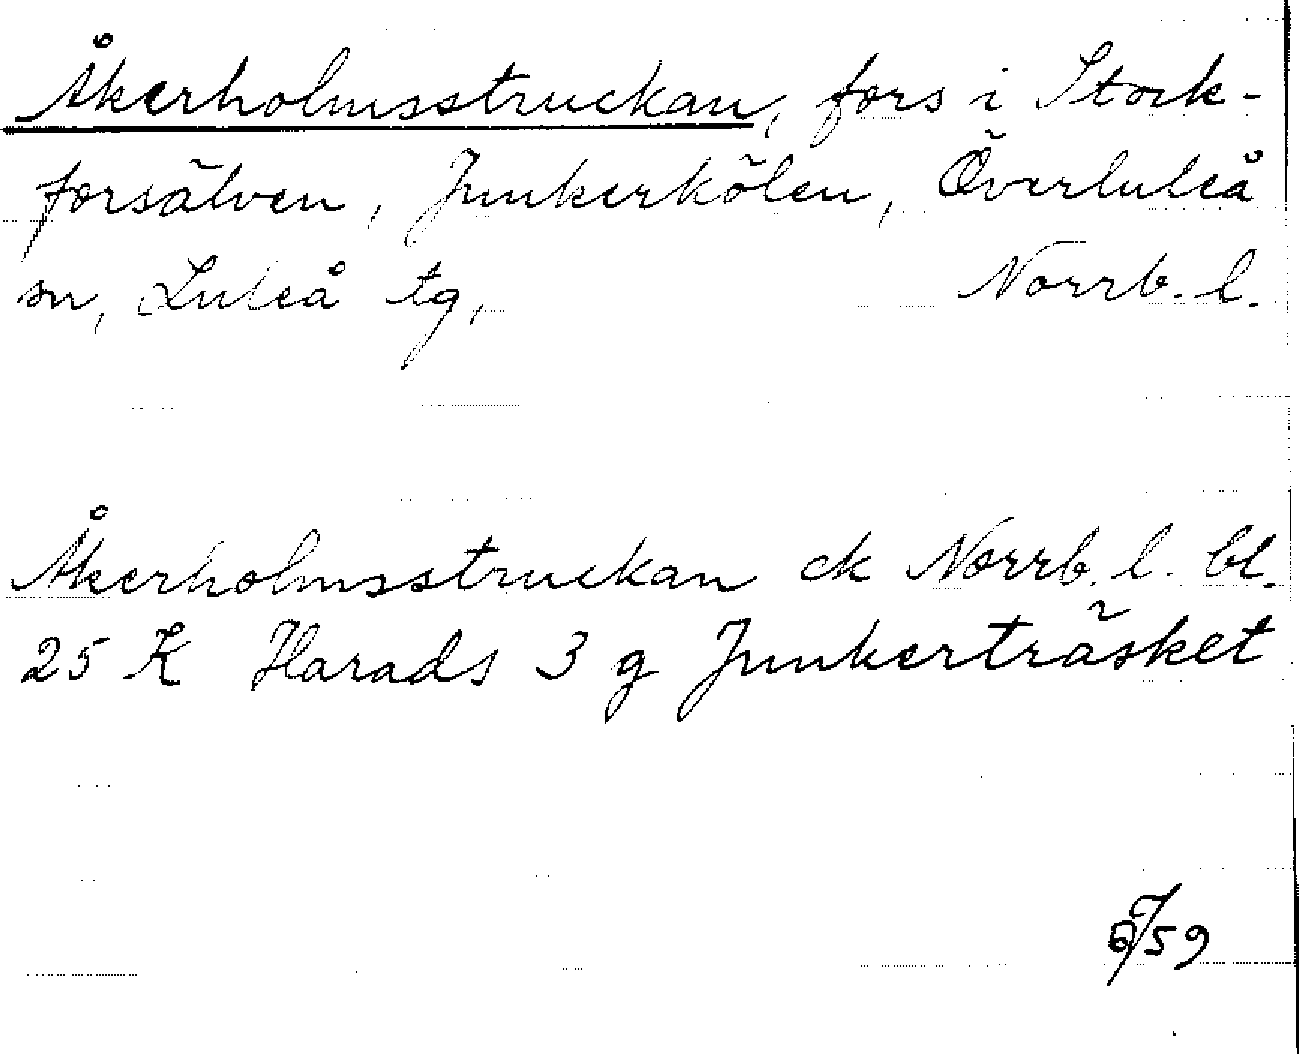 Åkerholmsstruckan, fors i Stock-
forsälven, Junkerkölen, Överluleå
sn, Luleå tg, Norrb. l.
Åkerholmsstruckan ek Norrb. l. bl.
25 K Harads 3 g Junkerträsket